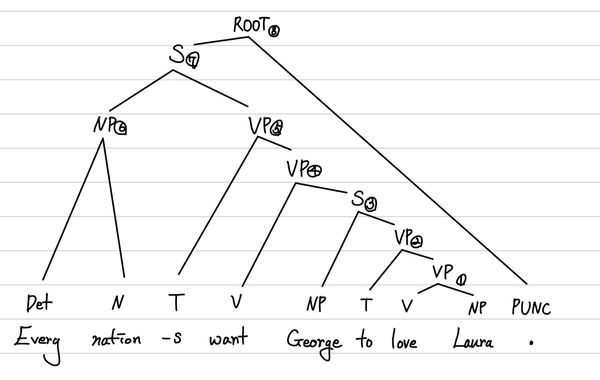 ROOT⑧
S⑦
NP⑥ VP⑤
VP④
S③
VP②
VP①
Det N T V NP T V NP PUNC
Every nation -s want George to love Laura .